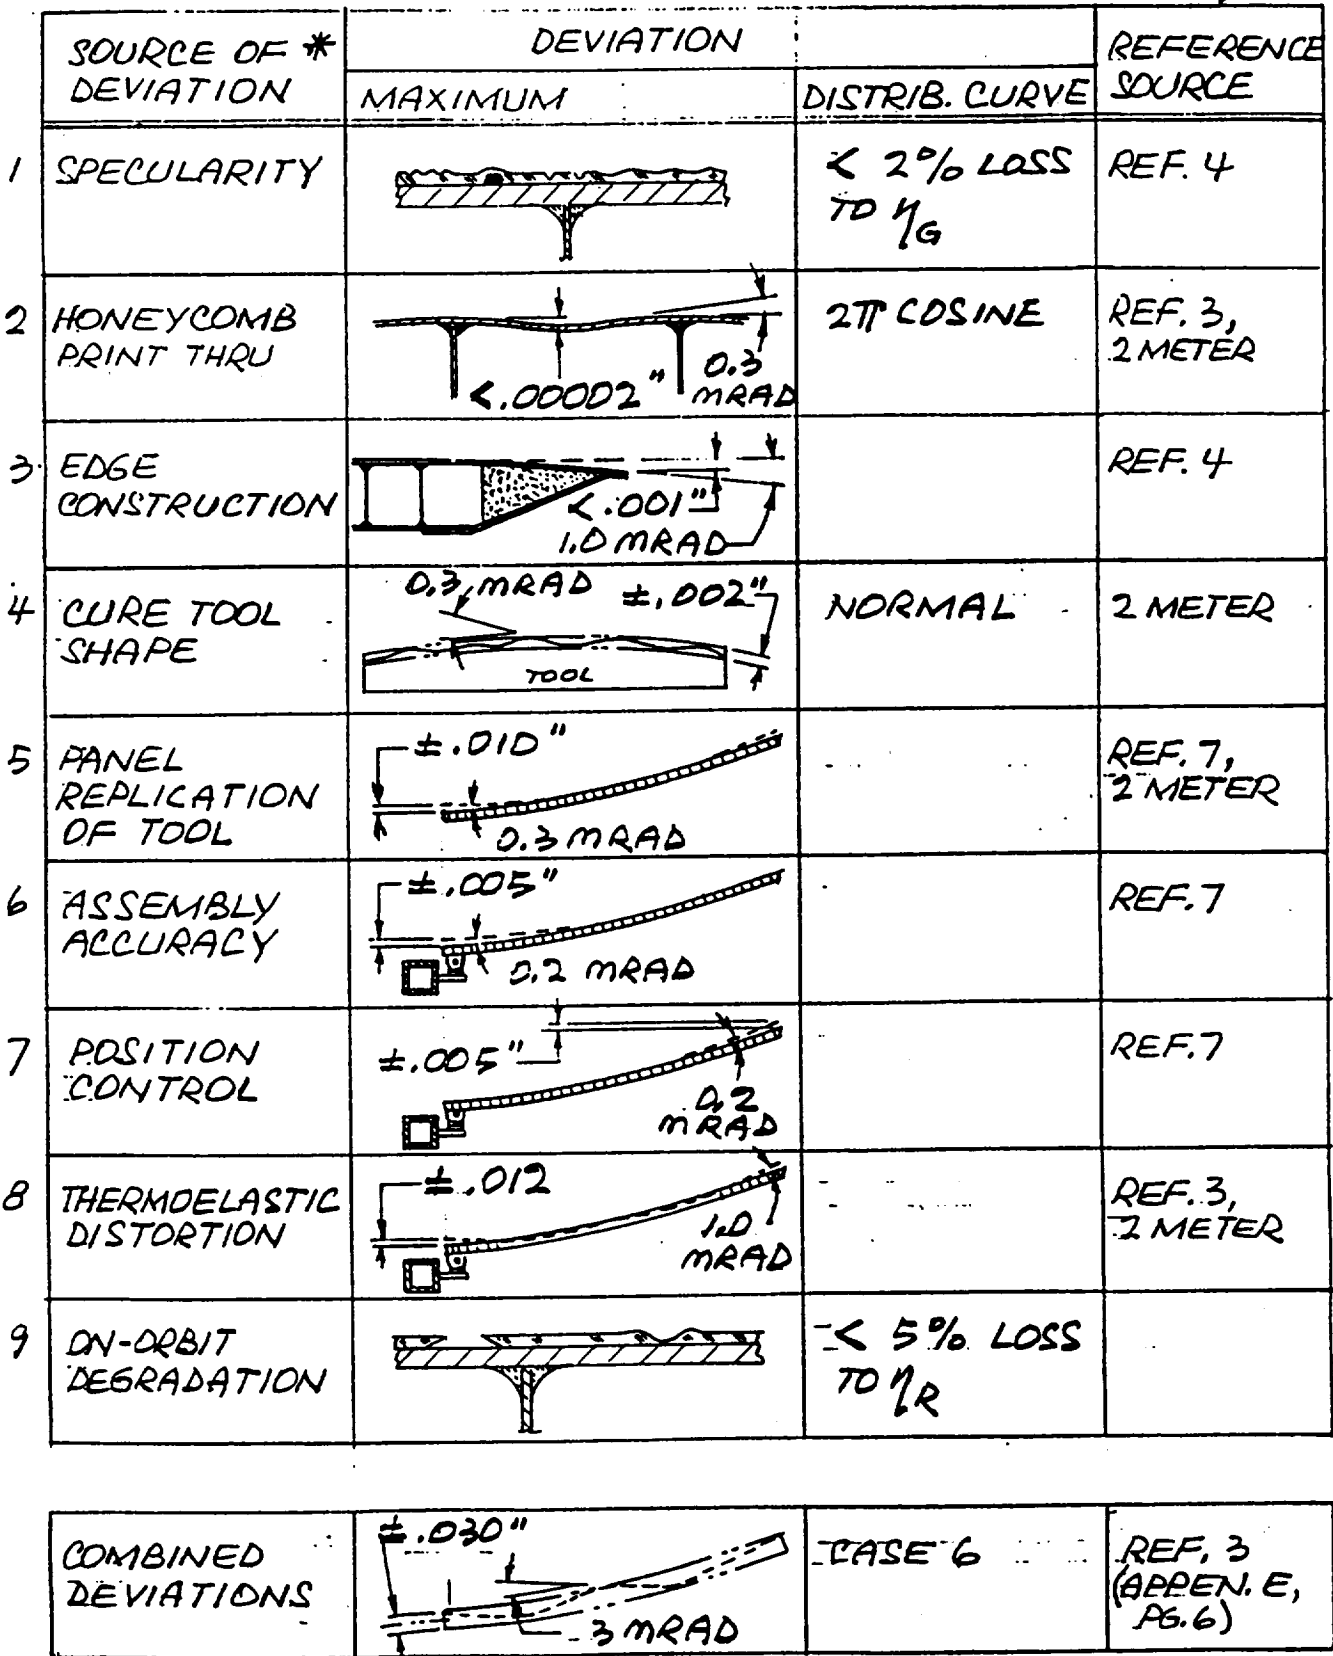 SOURCE OF *
DEVIATION
DEVIATION
MAXIMUM
DISTRIB. CURVE
REFERENCE
SOURCE
1 SPECULARITY
< 2% LOSS
TO ηG
REF. 4
2 HONEYCOMB
PRINT THRU
<.00002"
0.3
MRAD
2π COSINE
REF. 3,
2 METER
3. EDGE
CONSTRUCTION
<.001"
1.0 MRAD
REF. 4
4 CURE TOOL
SHAPE
0.3 MRAD
±.002"
TOOL
NORMAL
2 METER
5 PANEL
REPLICATION
OF TOOL
±.010"
0.3 MRAD
REF. 7,
2 METER
6 ASSEMBLY
ACCURACY
±.005"
0.2 MRAD
REF. 7
7 POSITION
CONTROL
±.005"
0.2
MRAD
REF. 7
8 THERMOELASTIC
DISTORTION
±.012
1.0
MRAD
REF. 3,
2 METER
9 ON-ORBIT
DEGRADATION
< 5% LOSS
TO ηR
COMBINED
DEVIATIONS
±.030"
3 MRAD
CASE 6
REF. 3
(APPEN. E,
PG. 6)